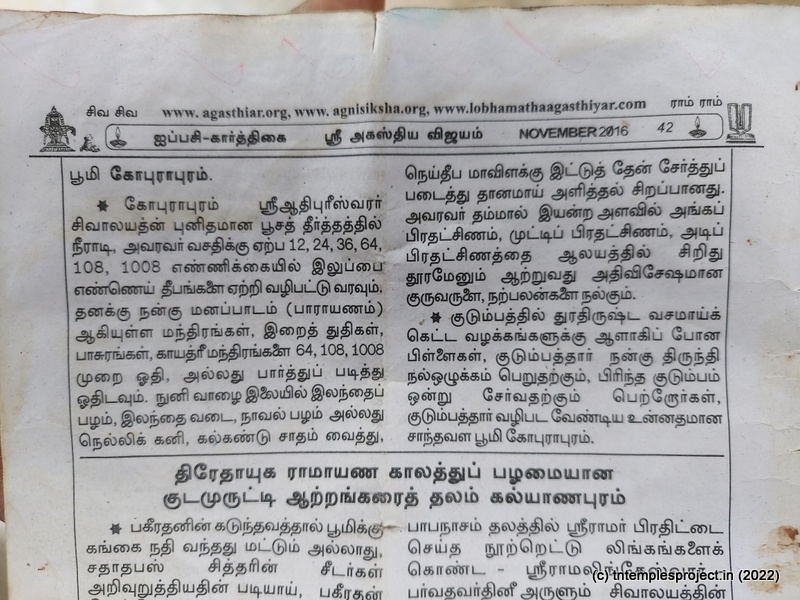 சிவ சிவ www. agasthiar.org, www. agnisiksha.org, www.lobhamathaagasthiyar.com ராம் ராம்
ஐப்பசி-கார்த்திகை ஸ்ரீ அகஸ்திய விஜயம் NOVEMBER 2016 42
பூமி கோபுராபுரம்.
✷ கோபுராபுரம் ஸ்ரீஆதிபுரீஸ்வரர்
சிவாலயத்ன் புனிதமான பூசத் தீர்த்தத்தில்
நீராடி, அவரவர் வசதிக்கு ஏற்ப 12, 24, 36, 64,
108, 1008 எண்ணிக்கையில் இலுப்பை
எண்ணெய் தீபங்களை ஏற்றி வழிபட்டு வரவும்.
தனக்கு நன்கு மனப்பாடம் (பாராயணம்)
ஆகியுள்ள மந்திரங்கள், இறைத் துதிகள்,
பாசுரங்கள், காயத்ரீ மந்திரங்களை 64, 108, 1008
முறை ஓதி, அல்லது பார்த்துப் படித்து
ஓதிடவும். நுனி வாழை இலையில் இலந்தைப்
பழம், இலந்தை வடை, நாவல் பழம் அல்லது
நெல்லிக் கனி, கல்கண்டு சாதம் வைத்து,
நெய்தீப மாவிளக்கு இட்டுத் தேன் சேர்த்துப்
படைத்து தானமாய் அளித்தல் சிறப்பானது.
அவரவர் தம்மால் இயன்ற அளவில் அங்கப்
பிரதட்சிணம், முட்டிப் பிரதட்சிணம், அடிப்
பிரதட்சிணத்தை ஆலயத்தில் சிறிது
தூரமேனும் ஆற்றுவது அதிவிசேஷமான
குருவருளை, நற்பலன்களை நல்கும்.
✷ குடும்பத்தில் துரதிருஷ்ட வசமாய்க்
கெட்ட வழக்கங்களுக்கு ஆளாகிப் போன
பிள்ளைகள், குடும்பத்தார் நன்கு திருந்தி
நல்ஒழுக்கம் பெறுதற்கும், பிரிந்த குடும்பம்
ஒன்று சேர்வதற்கும் பெற்றோர்கள்,
குடும்பத்தார் வழிபட வேண்டிய உன்னதமான
சாந்தவள பூமி கோபுராபுரம்.
திரேதாயுக ராமாயண காலத்துப் பழமையான
குடமுருட்டி ஆற்றங்கரைத் தலம் கல்யாணபுரம்
✷ பகீரதனின் கடுந்தவத்தால் பூமிக்கு
கங்கை நதி வந்தது மட்டும் அல்லாது,
சதாதபஸ் சித்தரின் சீடர்கள்
அறிவுறுத்தியதின் படியாய், பகீரதன்
பாபநாசம் தலத்தில் ஸ்ரீராமர் பிரதிட்டை
செய்த நூற்றெட்டு லிங்கங்களைக்
கொண்ட - ஸ்ரீராமலிங்கேஸ்வரர்
பர்வதவர்தினீ அருளும் சிவாலயத்தின்
(c) tntemplesproject.in (2022)